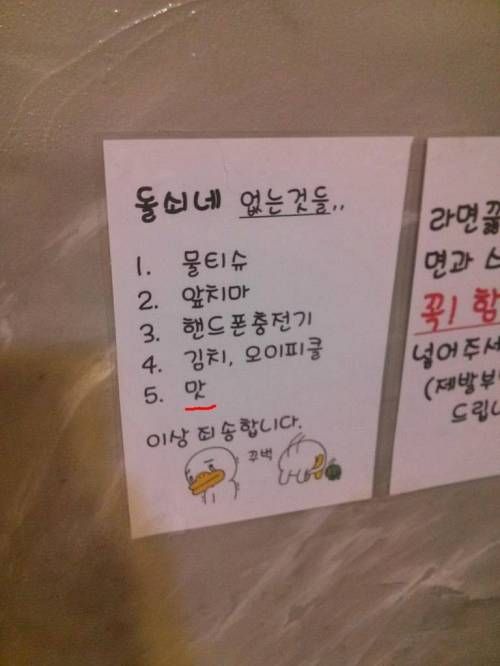 돌쇠네 없는것들..
1. 물티슈
2. 앞치마
3. 핸드폰충전기
4. 김치, 오이피클
5. 맛
이상 죄송합니다.
꾸벅
라면끓
면과 스
꼭! 함
넣어주세
(제발부
드립니